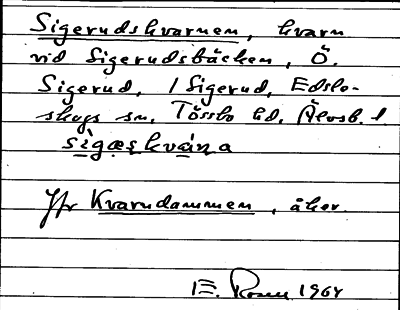 Sigerudskvarnen, kvarn
vid Sigerudsbäcken, Ö.
Sigerud, /Sigerud, Edsle-
skogs sn, Tössbo hd, Älvsb. l.
sìgæskvána
Jfr Kvarndammen, åker.
E. 1964